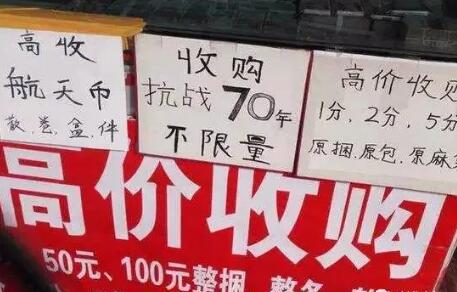 高收
航天币
散.卷.盒.件
收购
抗战70年
不限量
高价收购
1分,2分,5分
原捆.原包.原麻
高价收购
50元、100元整捆